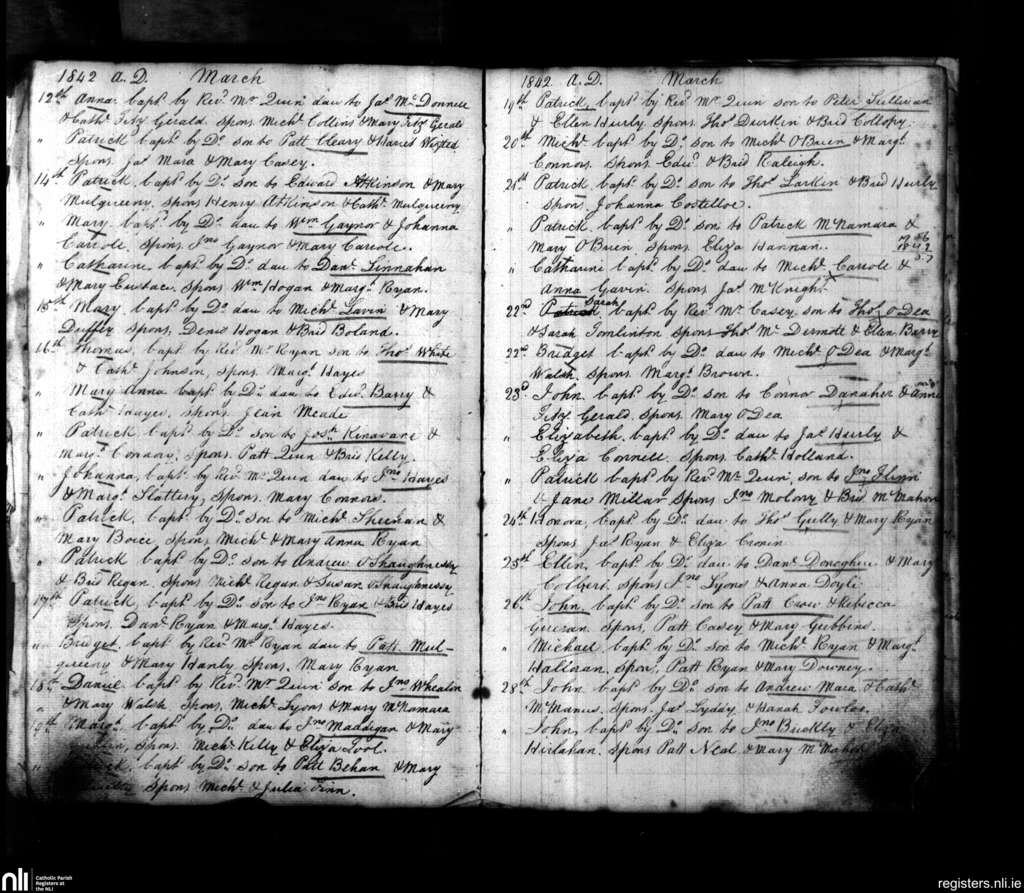 1842 A.D. March
12th Anna bapt by Revd Mr Quin dau to Jas McDonnell
& Cathe Fitz Gerald spons Michl Collins & Mary Fitz Gerald
" Patrick bapt by Do son to Patt Cleary & Harriet
Spons Jas Mara & Mary Casey.
14th Patrick, bapt by Do son to Edward Atkinson & Mary
Mulqueeny, spons Henry Atkinson & Cathe Mulqueeny
" Mary bapt by Do dau to Wm Gaynor & Johanna
Carrole, Spons, Jno Gaynor & Mary Carrole.
" Catharine, bapt by Do dau to Danl Linnahan
& Mary Eustace, Spons Wm Hogan & Margt Ryan.
15th Mary bapt by Do dau to Michl Lavin & Mary
Duffey Spons, Denis Hogan & Brid Boland.
16th Thomas, bapt by Revd Mr Ryan son to Thos White
& Cathe Johnson, Spons, Margt Hayes
" Mary Anna bapt by Do dau to Edwd Barry &
Cathe Hayes, spons Jean Meade
" Patrick, bapt by Do son to Josth Kinavane &
Margt Connory, Spons, Patt Quin & Brid Kelly.
" Johanna, bapt by Revd Mr Quin dau to Jno Hayes
& Margt Slattery, Spons, Mary Connors.
" Patrick, bapt by Do son to Michl Sheenan &
Mary Boice, Spons, Michl & Mary Anna Ryan
" Patrick bapt by Do son to Andrew O'Shaughnessy
& Brid Regan, Spons Michl Regan & Susan O'Shaughnessy
17th Patrick, bapt by Do son to Jno Ryan & Brid Hayes
Spons, Danl Ryan & Margt Hayes.
" Bridget, bapt by Revd Mr Ryan dau to Patt Mul-
queeny & Mary Hanly Spons, Mary Ryan
18th Daniel bapt by Revd Mr Quin son to Jno Whealan
" & Mary Walsh Spons, Michl Lyons & Mary McNamara
19th Margt bapt by Do dau to Jno Maddigan & Mary
spons, Michl Kelly & Eliza Tool.
" bapt by Do son to Patt Behan & Mary
Spons Michl & Julia Finn.
1842 A.D. March
19th Patrick, bapt by Revd Mr Quin son to Peter Sullivan
& Ellen Hurly Spons, Thos Durkin & Brid Collopy.
20th Michl bapt by Do son to Michl O'Brien & Margt
Connors Spons Edwd & Brid Raleigh.
21st Patrick bapt by Do son to Thos Larkin & Brid Hurly
spon, Johanna Costelloe.
" Patrick bapt by Do son to Patrick McNamara &
Mary O'Brien Spons Eliza Hannan.
" Catharine bapt by Do dau to Michl Carrole &
Anna Gavin Spons Jas McKnight
Sarah
22nd Patrick bapt by Revd Mr Casey, son to Thos O'Dea
& Sarah Tomlinton Spons Thos McDermott & Ellen Barry
22d Bridget bapt by Do dau to Michl O'Dea & Margt
Walsh, Spons Margt Brown.
23d John bapt by Do son to Connor Danaher & Anne
Fitz Gerald, Spons, Mary O'Dea
" Elizabeth, bapt by Do dau to Jas Hurly &
Eliza Connell, Spons, Cathe Holland.
" Patrick bapt by Revd Mr Quin, son to Jno Flinn
& Jane Millear Spons Jno Molony & Brid McMahon
24th Honora, bapt by Do dau to Thos Gully & Mary Ryan
Spons Jas Ryan & Eliza Cronin
25th Ellen, bapt by Do dau to Danl Donoghue & Mary
Colbert, Spons Jno Lyons & Anna Doyle
26th John, bapt by Do son to Patt Crow & Rebecca
Spons, Patt Casey & Mary Gubbins.
" Michael bapt by Do son to Michl Ryan & Margt
Hallinan, Spons, Patt Ryan & Mary Downey.
28th John bapt by Do son to Andrew Mara & Cathe
McManus Spons Jas Lyddy & Hanah Fowloe
" John, bapt by Do son to Jno Buckly & Eliza
Spons Patt Neal & Mary McMahon
nli Catholic Parish
Registers at
the NLI
registers.nli.ie